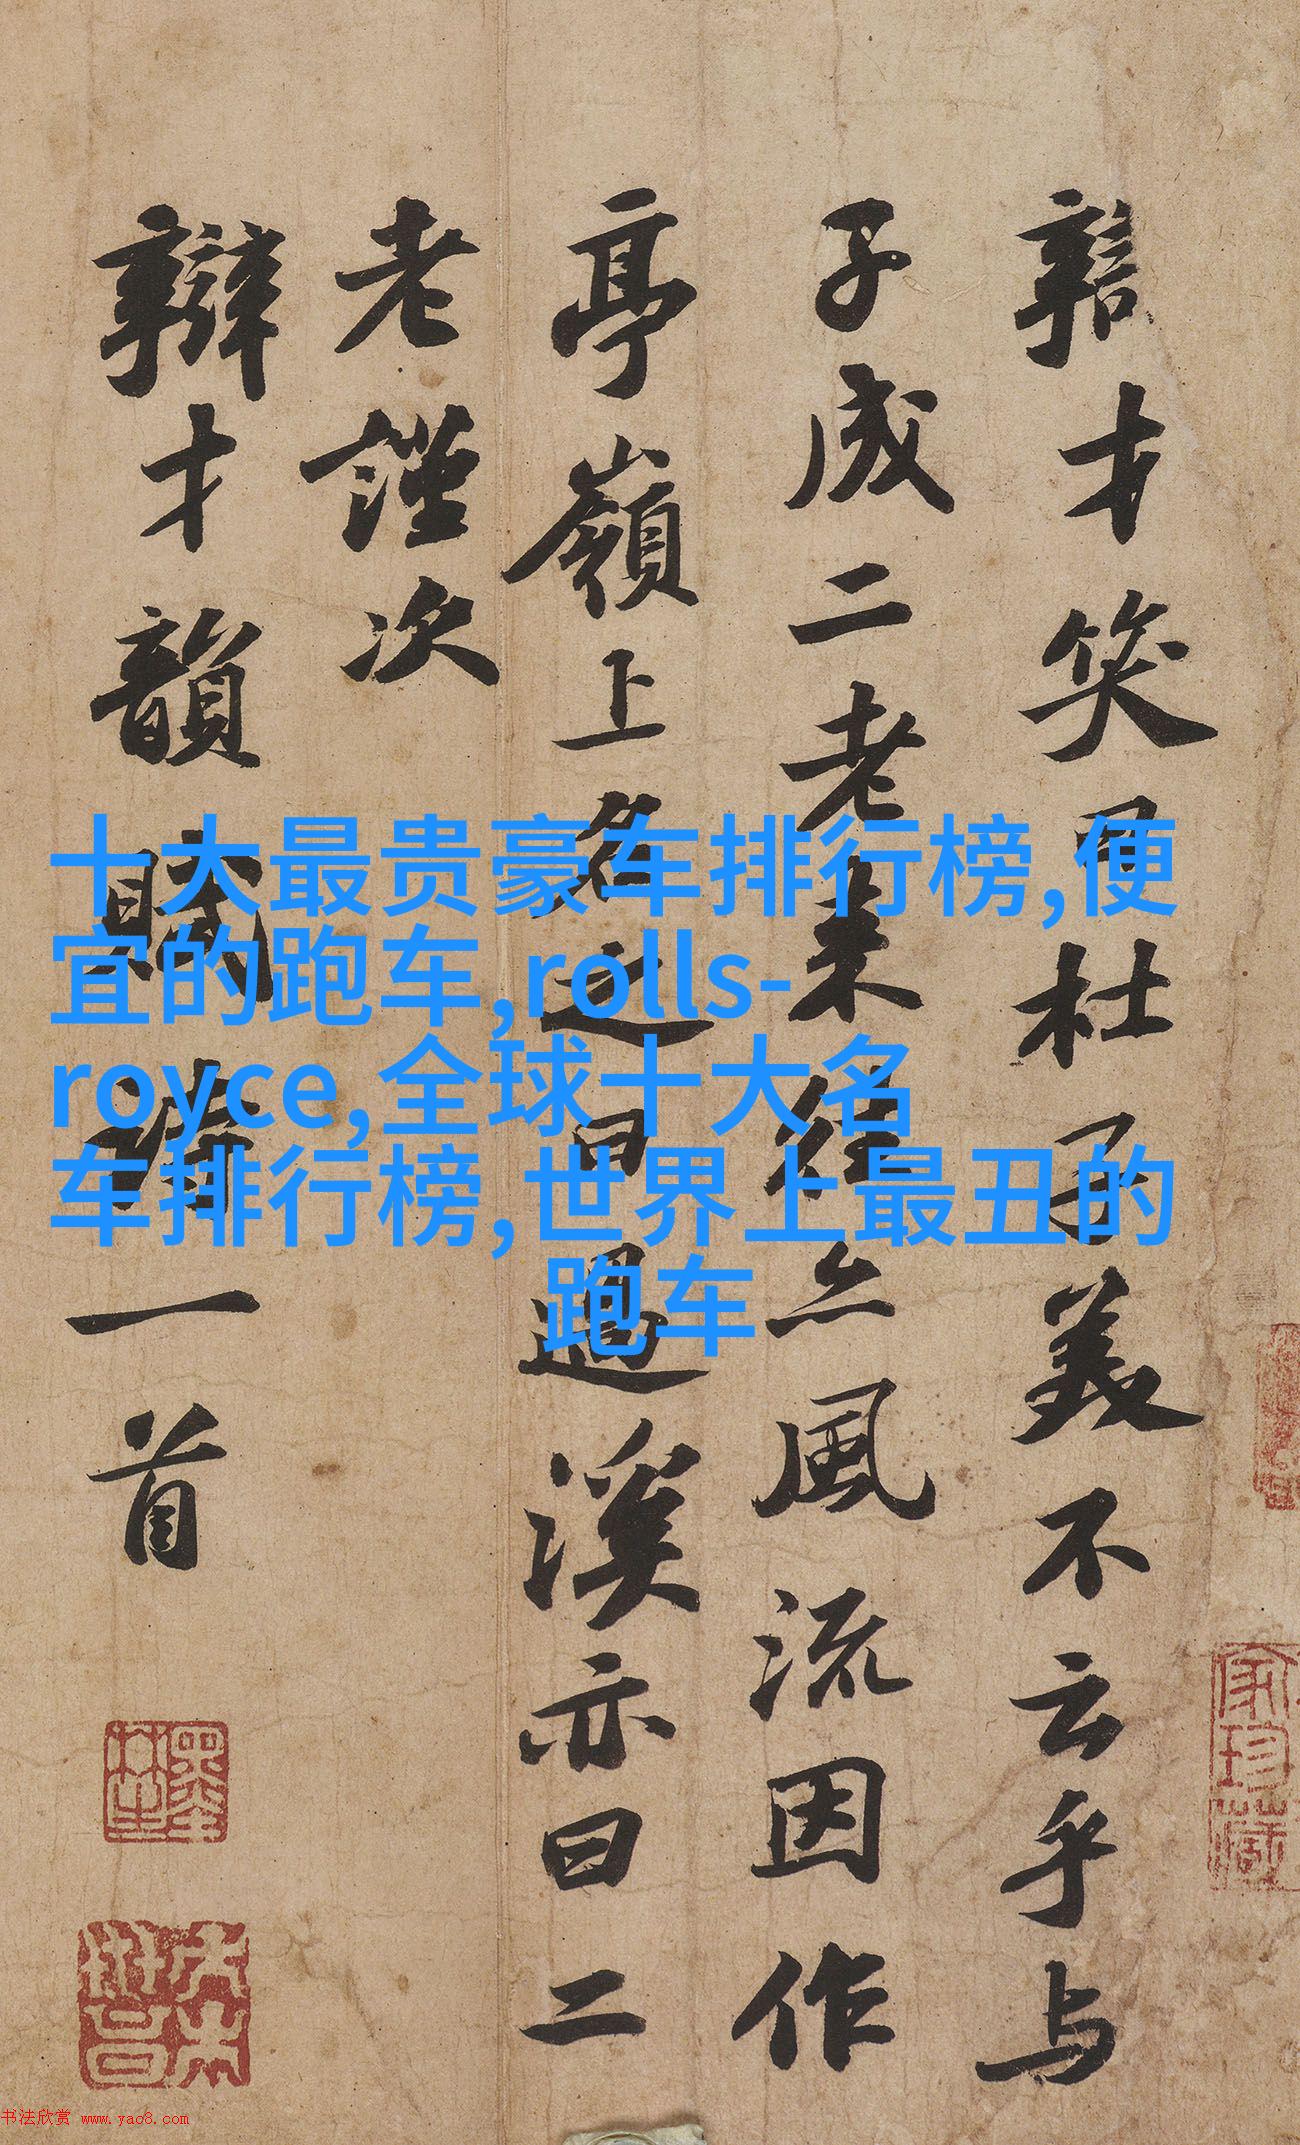 辯才笑曰杜子美不云乎与
子成二老来往亦風流因作
亭嶺上名之曰過溪亦曰二
老謹次
辯才韻賦詩一首
十大最贵豪车排行榜,便
宜的跑车,rolls-
royce,全球十大名
车排行榜,世界上最丑的
跑车
家珍藏
书法欣赏 www.yac8.com